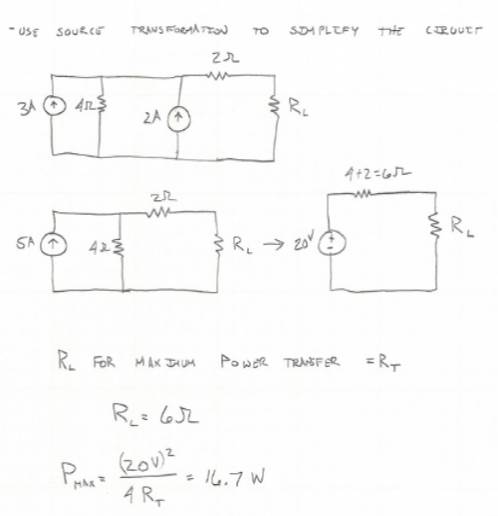 - USE SOURCE TRANSFORMATION TO SIMPLIFY THE CIRCUIT
2Ω
3A 4Ω 2A R_L
4+2=6Ω
2Ω
5A 4Ω R_L → 20V R_L
R_L FOR MAXIMUM POWER TRANSFER = R_T
R_L = 6Ω
P_MAX = (20V)² / 4 R_T = 16.7 W